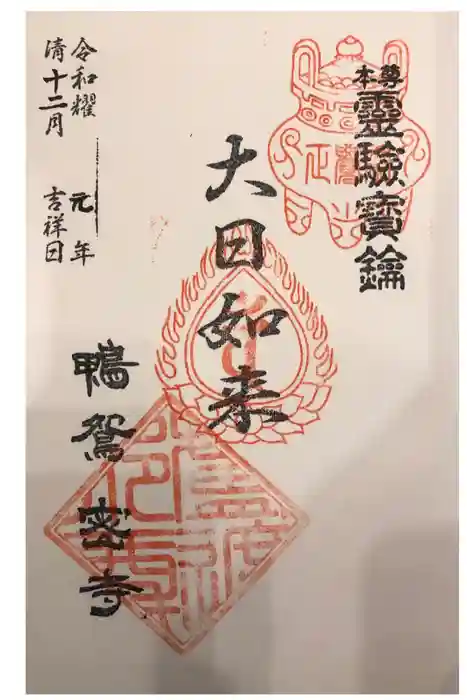 本尊
靈驗寶鑰
大日如来
令和耀 元年
清十二月 吉祥日
鴨鴛密寺